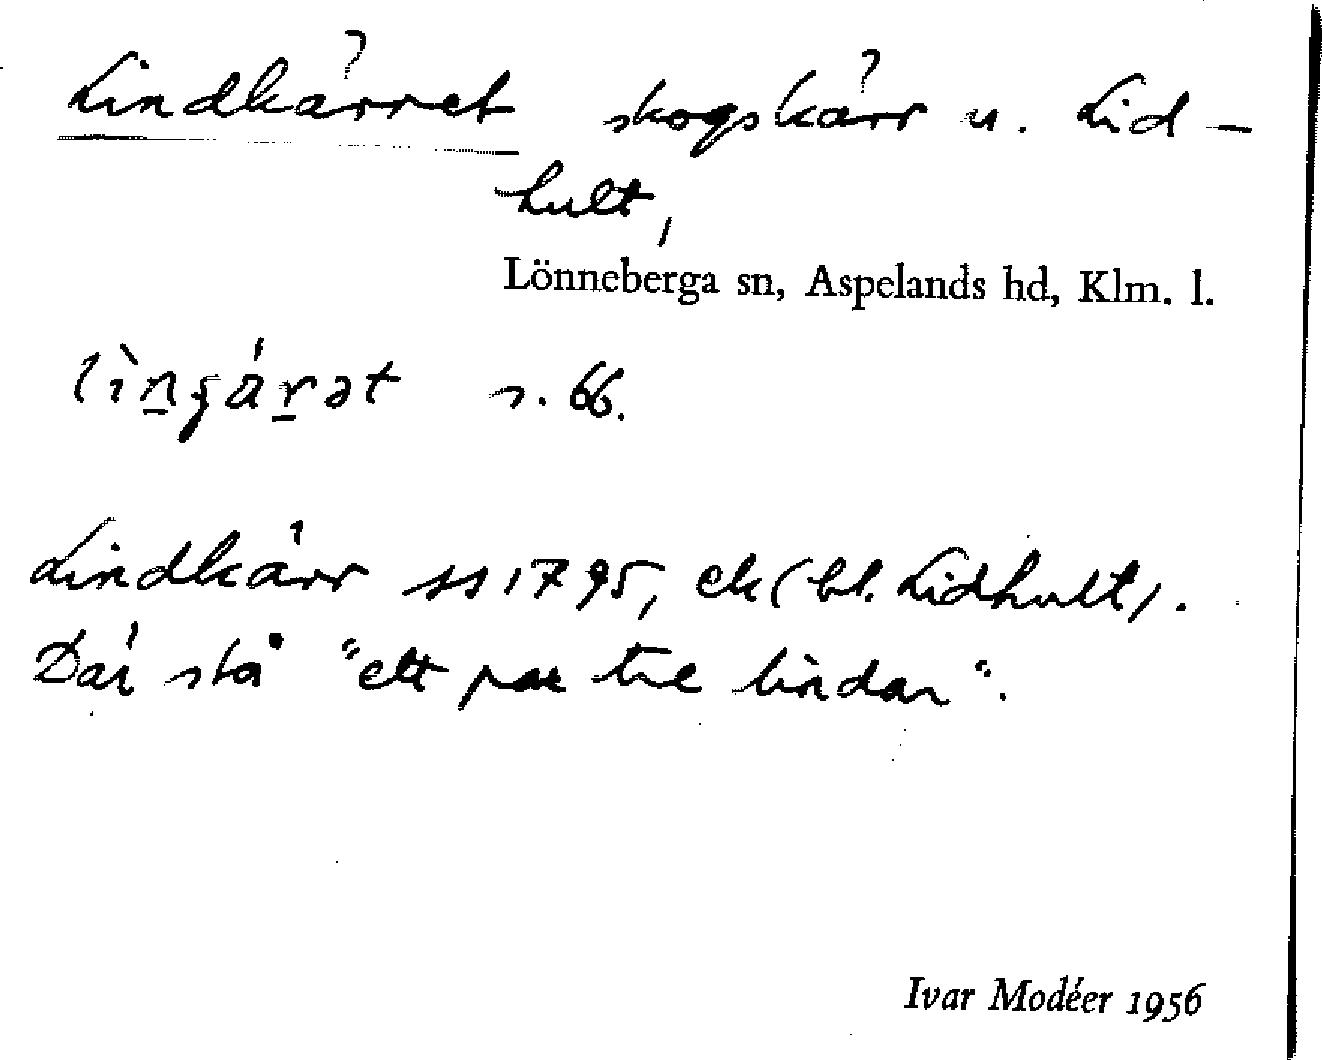 Lindkärret skogskärr u. Lid-
hult,
Lönneberga sn, Aspelands hd, Klm. l.
s. 66.
Lindkärr ss 1795, ek (bl. Lidhult).
Där stå "ett par tre lindar".
Ivar Modéer 1956